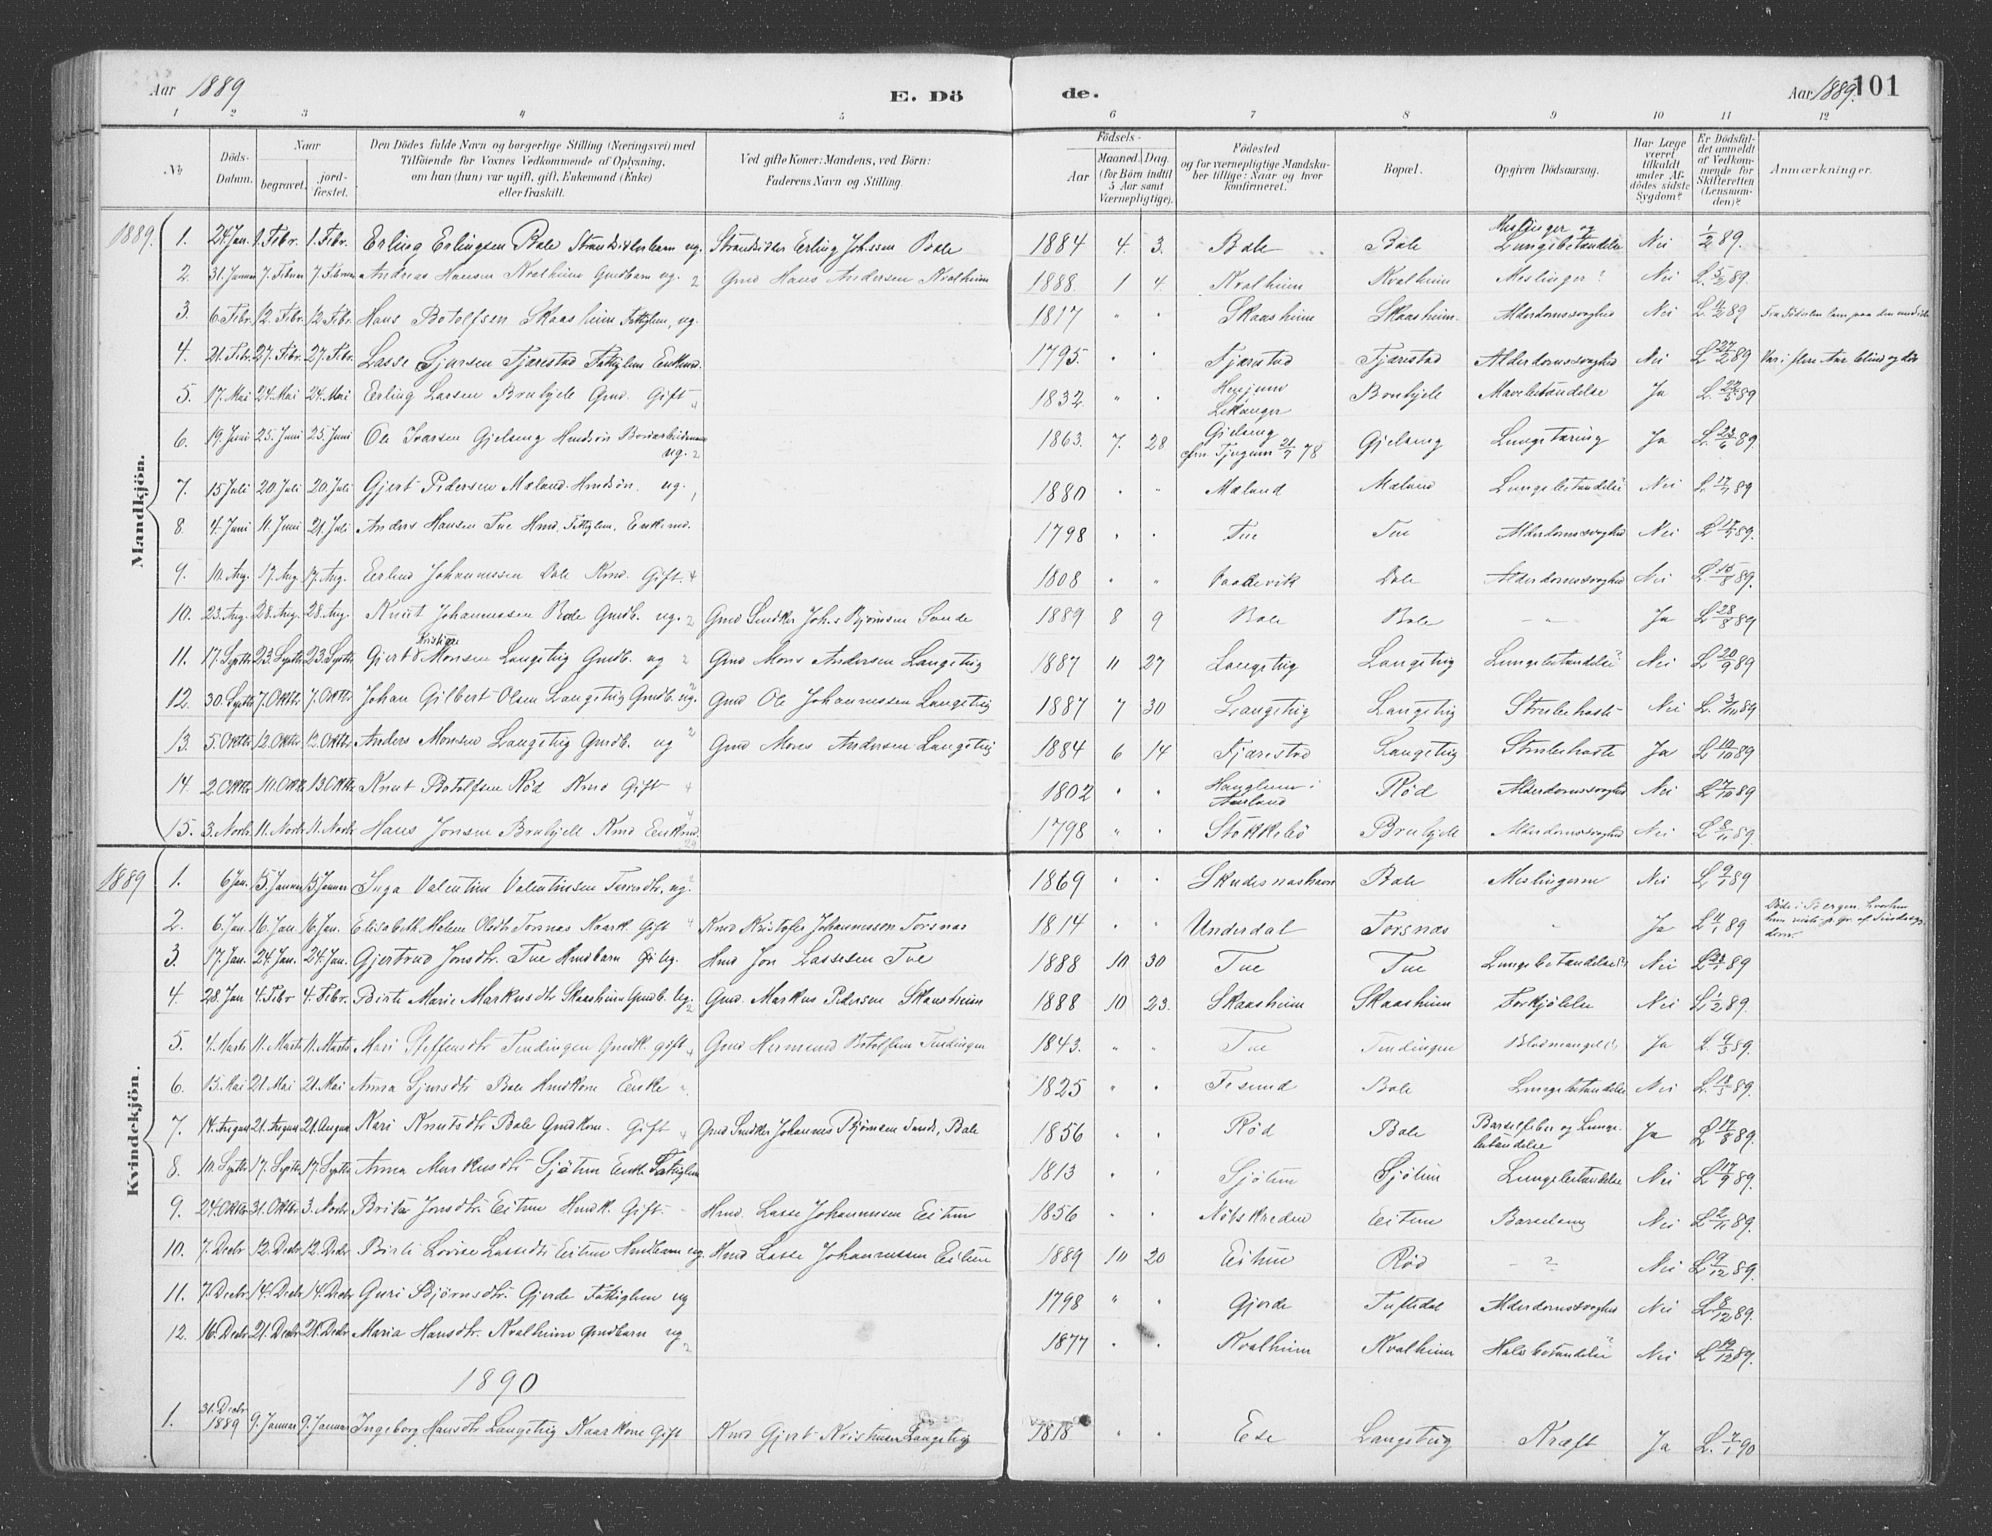 Aar 1889
E. Dö de.
Aar 1889. 101
1 2 3 4 5 6 7 8 9 10 11 12
No
Döds-Datum.
Naar
begravet.
jordfæstet.
Den Dödes fulde Navn og borgerlige Stilling (Næringsvei) med
Tilföiende for Voxnes Vedkommende af Oplysning,
om han (hun) var ugift, gift, Enkemand (Enke)
eller fraskilt.
Ved gifte Koner: Mandens, ved Börn:
Faderens Navn og Stilling.
Födsels-
Aar
Maaned. Dag.
(for Börn indtil
5 Aar samt
Værnepligtige).
Födested
og for værnepligtige Mandska-
ber tillige: Naar og hvor
konfirmeret.
Bopæl.
Opgiven Dödsaarsag.
Har Læge
været
tilkaldt
under Af-
dödes sidste
Sygdom?
Er Dödsfal-
det anmeldt
af Vedkom-
mende for
Skifteretten
(Lensman-
den)?
Anmærkninger.
Mandkjön.
1889. 1. 24. Jan. 1. Febr. 1. Febr. Erling Erlingsen Bale Strandsidderbarn ug. Strandsidder Erling Johssen Bale 1884 4. 3. Bale Bale Meslinger og Lungebetændelse Nei 1/2 89.
2. 31. Januar 7. Februar 7. Februar Andreas Hansen Kvalheim Gmdbarn ug. 2 Gmd Hans Andersen Kvalheim 1888. 1 4. Kvalheim Kvalheim Meslinger? Nei L. 5/2 89.
3. 6. Febr. 12. Febr. 12. Febr. Hans Botolfsen Skaasheim Fattiglem, ug. 1817 " " Skaasheim Skaasheim. Alderdomssvaghed Nei
4. 21. Febr. 27. Febr. 27. Febr. Lasse Sjursen Fjærestad Fattiglem Enkmd. 1795 " " Fjærestad Fjærestad Alderdomssvaghed Nei L 27/2 89 Var i flere Aar blind og döv
5. 17. Mai 24. Mai 24. Mai Erling Lassen Brubjele Gmd. Gift 4 1832 " " Henjum Lekanger Brubjele Mavebetændelse Ja
6. 19. Juni 25. Juni 25. Juni Ole Ivarsen Gjelseng Hmdsön ug. 2 1863. 7. 28 Gjelseng Tjugum 21/7 78 Gjelseng Lungetæring Ja L. 23/6 89.
7. 15 Juli 20. Juli 20. Juli Gjert Pedersen Mæland Hmdsön. ug. 1880 " " Mæland Mæland Lungebetændelse Nei L. 17/7 89
8. 4. Juni 11. Juni 21. Juli Anders Hansen Tue Hmd. Fattiglem, Enkemd. 1798 " " Tue Tue Alderdomssvaghed Nei
9. 10. Aug. 17. Aug. 17. Aug. Erlend Johannessen Dale Kmd. Gift. 4 1808 " " Dale Alderdomssvaghed Nei
10. 23. Aug. 28. Aug. 28. Aug. Knut Johannessen Bale Gmdb. ug. 2 Gmd Smdker Johs Bjørnsen Sande 1889 8 9 Bale Bale - " - Ja L 28/8 89
11. 17. Septbr 23. Septbr 23. Septbr Gjert Kristian Monsen Langeteig Gmdb. ug 2 Gmd Mons Andersen Langeteig 1887 11 27 Langeteig Langeteig Lungebetændelse? Nei L 20/9 89
12. 30. Septbr 7. Oktbr 7. Oktbr Johan Gilbert Olsen Langeteig Gmdb. ug. 2 Gmd Ole Johannessen Langeteig 1887 7 30 Langeteig Langeteig Strubehoste Nei L. 3/10 89
13. 5. Oktbr 12. Oktbr 12. Oktbr Anders Monsen Langeteig Gmdb. ug 2 Gmd Mons Andersen Langeteig 1884 6 14 Fjærestad Langeteig Strubehoste Ja L 10/10 89
14. 2. Oktbr 10. Oktbr 13. Oktbr Knut Botolfsen Rød Kmd Gift 4 1802 " " Haugheim i Aurland Rød Alderdomssvaghed Nei L 7/10 89
15. 3. Novbr 11. Novbr 11. Novbr Hans Jonsen Brubjele Kmd Enkmd. 4 1798 " " Stokkebö Brubjele Alderdomssvaghed Nei L 8/11 89.
Kvindekjön.
1889 1. 6 Jan. 15. Januar 15. Januar Inga Valentine Valentinsen ug. 2 1869 " " Skudesnæshavn Bale Meslingerne Nei L 9/1 89
2. 6. Jan. 16. Jan. 16. Jan. Elisabeth Helene Olsdtr. Torsnæs Kaark. Gift 4 Kmd Kristofer Johannesson Torsnæs 1814 " " Underdal Torsnæs " Ja L 11/1 89 Döde i Bergen
3. 17. Jan. 24. Jan. 24. Jan. Gjertrud Jonsdtr. Tue Hmdbarn ug. Hmd Jon Lassesen Tue 1888 10 30 Tue Tue Lungebetændelse Nei
4. 28. Jan 4. Febr 4. Febr. Birte Marie Markusdtr Skaasheim Gmdb. Ug. 2 Gmd. Markus Pedersen Skaasheim 1888 10 23. Skaasheim Skaasheim Forkjølelse Nei L. 1/2 89.
5. 4. Marts 11. Marts 11. Marts Mari Steffensdtr Tendingen Gmdk gift 4 Gmd Hermund Botolfsen Tendingen 1843. " " Tue Tendingen Blodmangel Ja L. 9/3 89.
6. 13. Mai 21. Mai 21. Mai Anna Sjursdtr Bale Hmdkone Enke 1825 " " Fesund Bale Lungebetændelse Nei L. 18/5 89.
7. 14. August 21. August 21. August Kari Knutsdtr Bale Gmdkone. Gift 4 Gmd Smdker Johannes Bjørnsen Sande, Bale 1856 " " Rød Bale Barselfeber og Lunge-betændelse Ja L 17/8 89.
8. 10. Septbr 17. Septbr 17. Septbr Anna Markusdtr Sjøtun Enke Fattiglem 1813 " " Sjøtun Sjøtun Lungebetændelse Nei L 17/9 89.
9. 24. Oktbr 31. Oktbr 3. Novbr Brita Jonsdtr. Eitun Hmdk. Gift. Hmd. Lasse Johannessen Eitun 1856 " " Eitun Barselseng Nei L 2/11 89.
10. 7. Decbr 12. Decbr 12. Decbr Birte Lovise Lassedtr Eitun Hmdbarn ug. Hmd Lasse Johannessen Eitun 1889 10 20 Eitun Rød - ? Nei L 9/12 89.
11. 7. Decbr 14. Decbr 14. Decbr Guri Bjørnsdtr. Gjerde Fattiglem ug 1798 " " Gjerde Tuftedal Alderdomssvaghed Nei L 8/12 89.
12. 16. Decbr 21. Decbr 21. Decbr Maria Hansdtr. Kvalheim Gmdbarn ug 2 1877 " " Kvalheim Kvalheim Halsbetændelse? Nei L 19/12 89.
1890
1. 31. Decbr 1889 9. Januar 9. Januar Ingeborg Hansdtr Langeteig Kaarkone Gift Kmd Gjert Kristensen Langeteig 1818 " " Ese Langeteig Kræft Ja L. 7/1 90